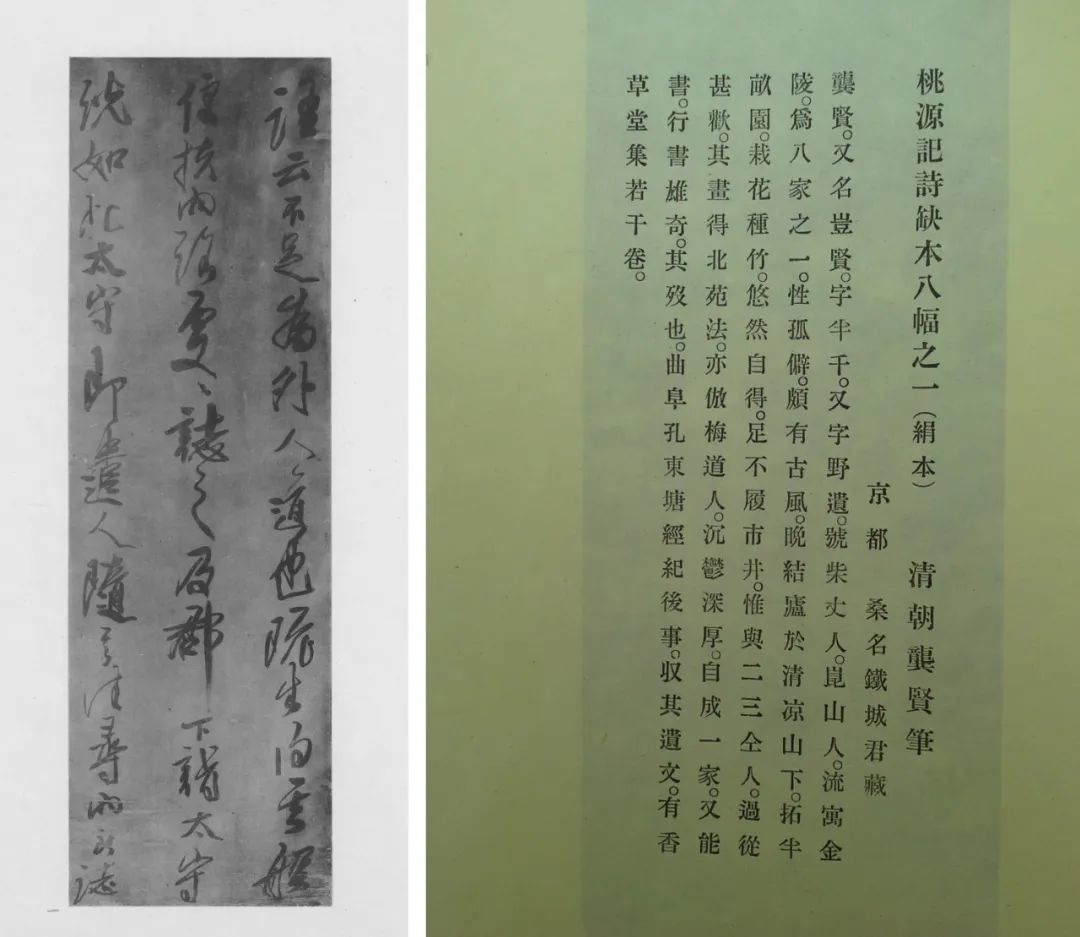 語云不足為外人道也既出得其船
便扶向路處〻誌之及郡下詣太守
說如此太守即遣人隨其往尋向所誌
桃源記詩缺本八幅之一（絹本） 清朝龔賢筆
京都 桑名鐵城君藏
龔賢。又名豈賢。字半千。又字野遺。號柴丈人。崑山人。流寓金
陵。爲八家之一。性孤僻。頗有古風。晩結廬於清凉山下。拓半
畝園。栽花種竹。悠然自得。足不履市井。惟與二三仝人。過從
甚歡。其畫得北苑法。亦倣梅道人。沉鬱深厚。自成一家。又能
書。行書雄奇。其歿也。曲阜孔東塘經紀後事。収其遺文。有香
草堂集若干卷。